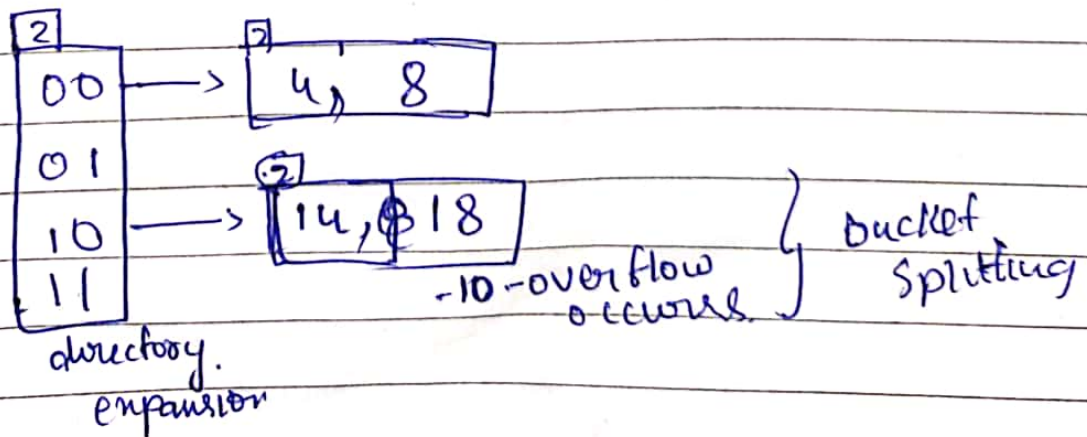 2
2
00 → 4, 8
01
2
10 → 14, 18
11
-10-overflow
occurs.
bucket
splitting
directory.
expansion